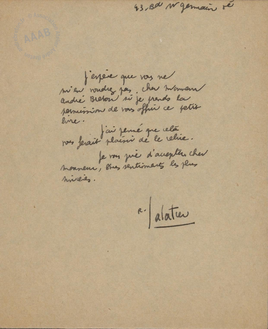 43, Bd St germain Ve
AAAB
J'espère que vous ne
m'en voudrez pas, cher monsieur
andré Breton si je prends la
permission de vous offrir ce petit
livre.
J'ai pensé que cela
vous ferait plaisir de le relire.
Je vous prie d'accepter cher
monsieur, mes sentiments les plus